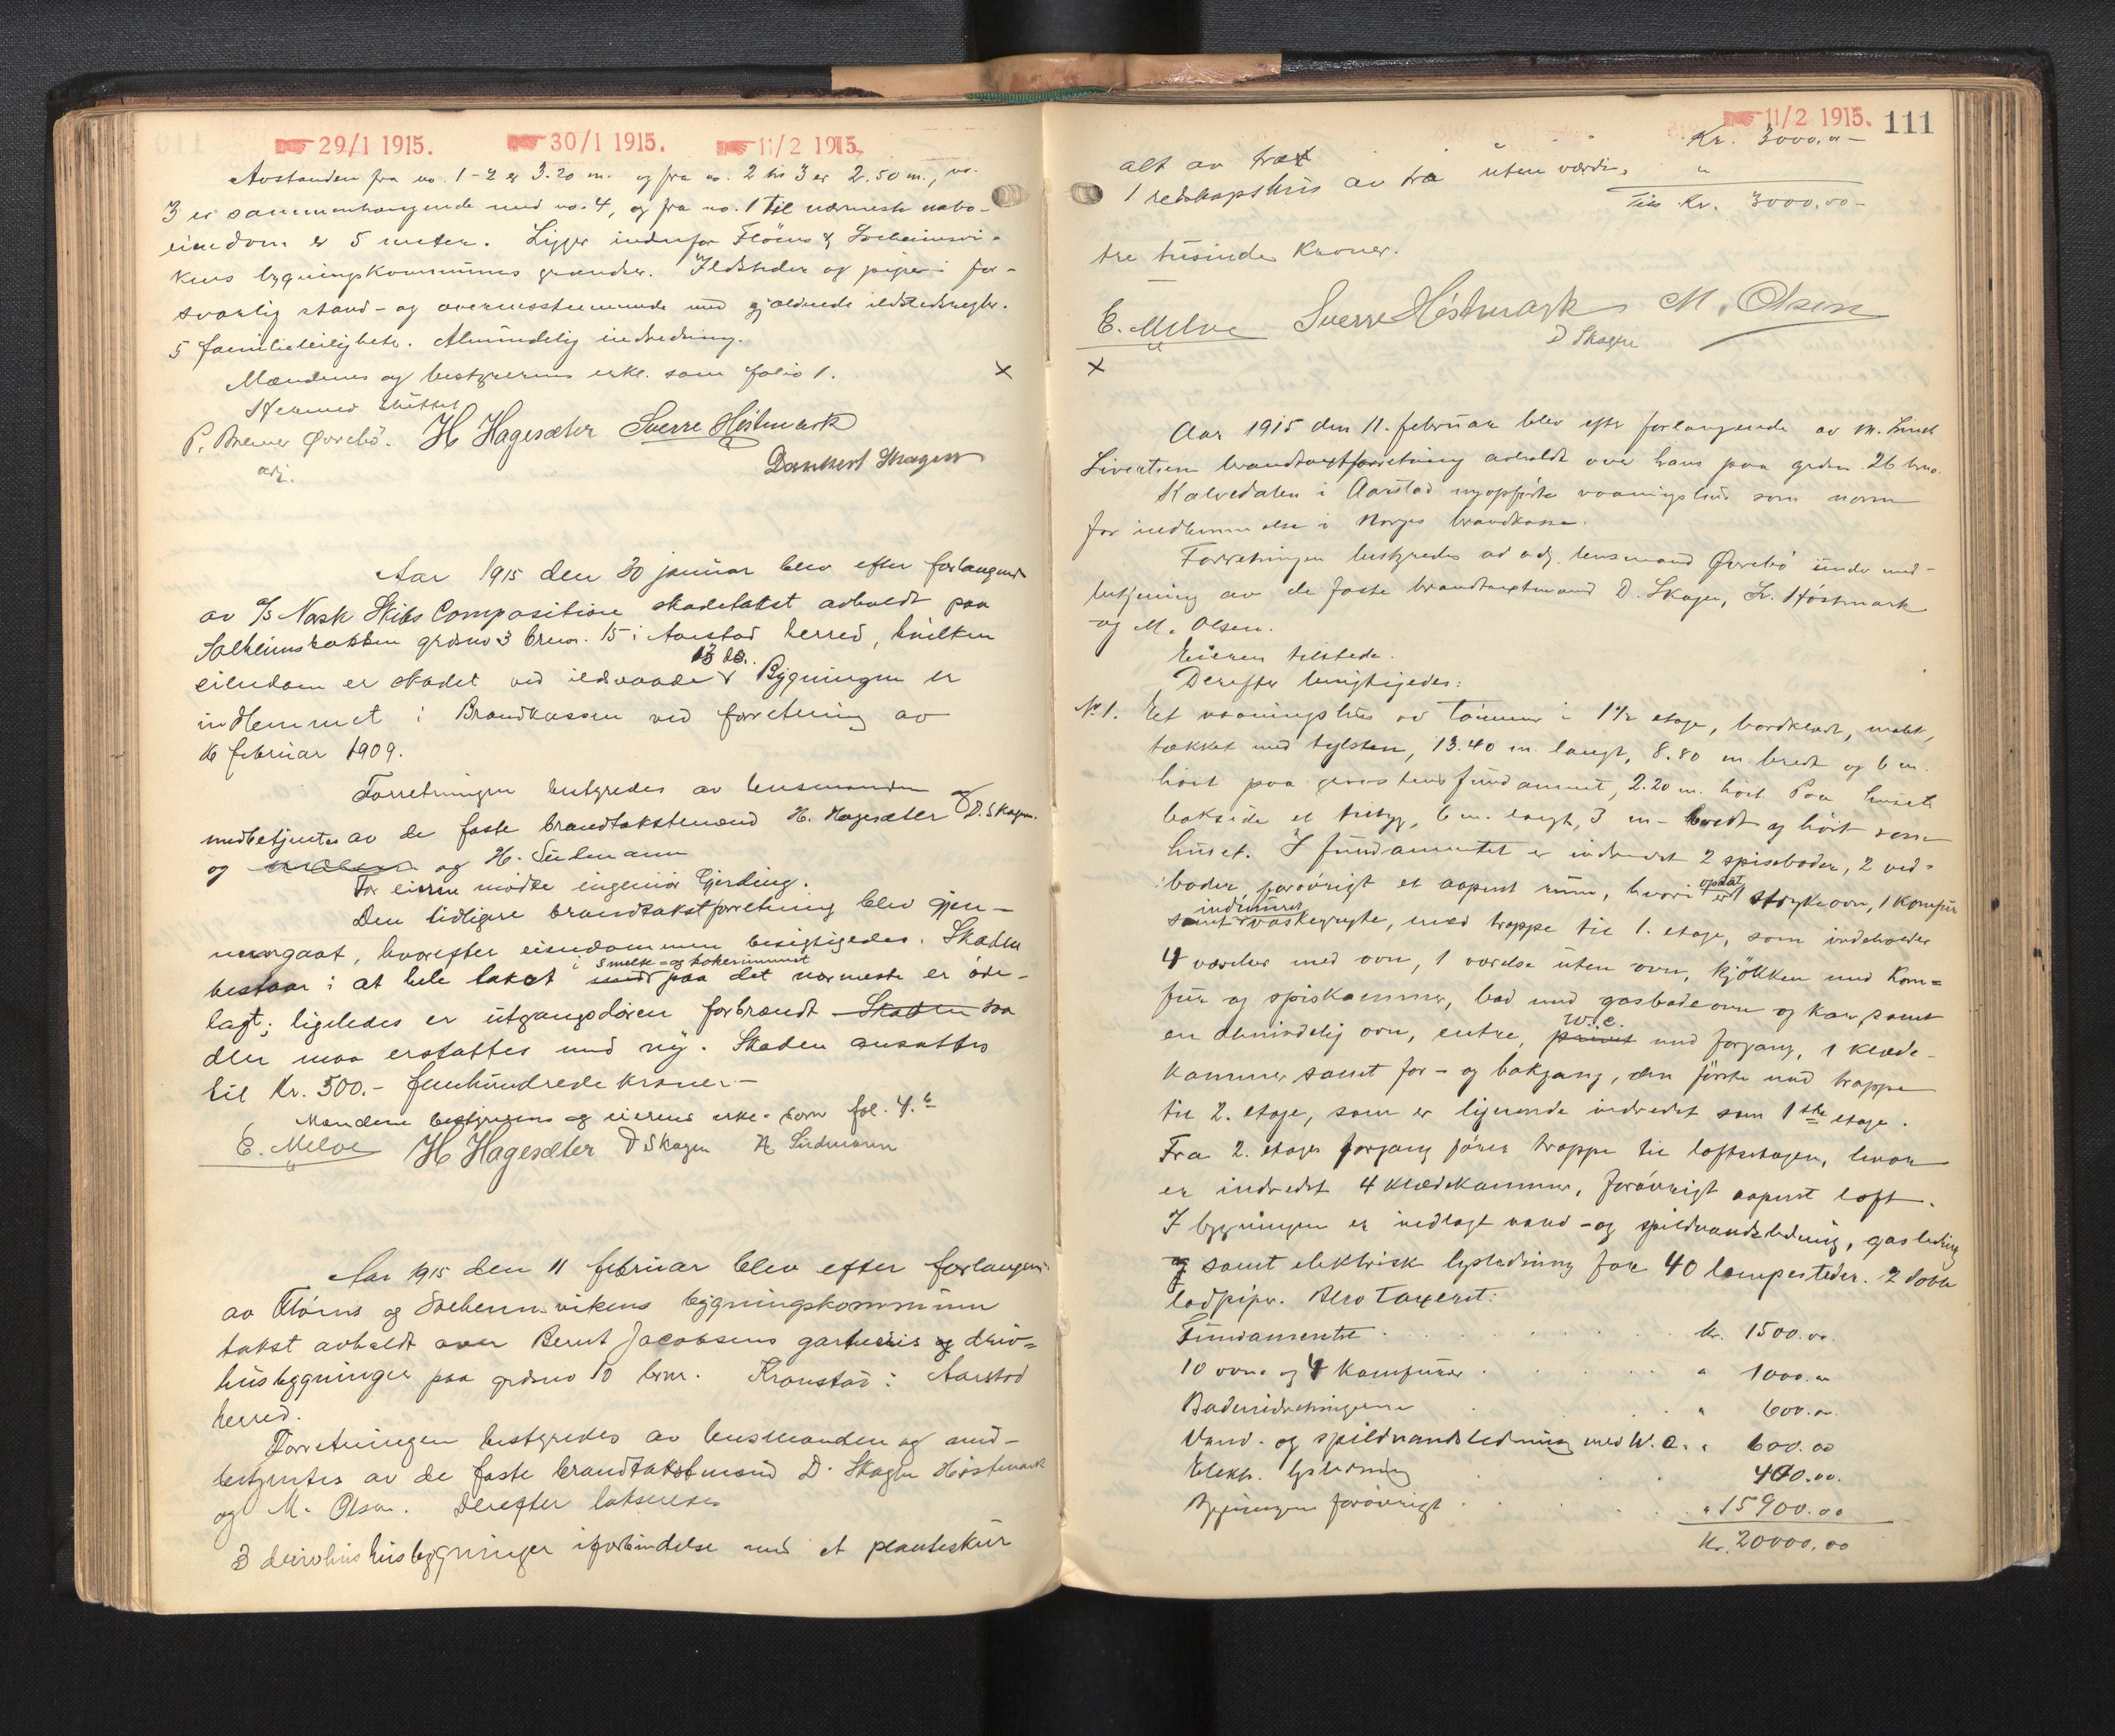 29/1 1915. 30/1 1915. 11/2 1915.
Avstanden fra no. 1-2 er 3.20 m. og fra no. 2 til 3 er 2.50 m., no.
3 er sammenhængende med no. 4, og fra no. 1 til nærmeste nabo-
eiendom er 5 meter. Ligger indenfor Fløens & Solheimsvi-
kens bygningskommunes grænser. Ildsteder og piper i for-
svarlig stand - og overensstemmende med gjældende ildstedsregler.
5 familieleiligheter. Almindelig indredning.
Mændenes og bestyrerens erkl. som folio 1.
Hermed sluttet
P. Bremer Øvrebö. H Hagesæter Sverre Höstmark
adj.
Dankert Skagen
Aar 1915 den 30 januar blev efter forlangende
av A/S Norsk Skibs Composition skadetakst avholdt paa
Solheimsbakken grdsno 3 brno. 15 i Aarstad herred, hvilken
13 ds.
eiendom er skadet ved ildsvaade Bygningen er
indlemmet i Brandkassen ved forretning av
16 februar 1909.
Forretningen bestyredes av lensmanden
medbetjentes av de faste brandtakstmænd H. Hagesæter D. Skagen
og og H. Sudmann
For eieren mødte ingeniør Gjerding.
Den tidligere brandtakstforretning blev gjen-
nemgaat, hvorefter eiendommen besigtigedes. Skaden
i smelte- og kokerummet
bestaar i at hele taket paa det nærmeste er øde-
lagt; ligeledes er utgangsdøren forbrændt Skaden saa
den maa erstattes med ny. Skaden ansattes
til Kr. 500.- femhundrede kroner -
Mændene bestyrerens og eierens erkl. som fol. 4.
E. Melve H Hagesæter D Skagen H Sudmann
Aar 1915 den 11 februar blev efter forlangende
av Fløens og Solheimsvikens bygningskommune
takst avholdt over Bernt Jacobsens gartneris og driv-
husbygninger paa grdsno 10 brno. Kronstad i Aarstad
herred.
Forretningen bestyredes av lensmanden og med-
betjentes av de faste brandtakstmænd D. Skagen Høstmark
og M. Olsen. Derefter takseredes
3 drivhus husbygninger i forbindelse med et planteskur
11/2 1915. 111
alt av træ Kr. 3000.00 -
1 redskapshus av træ uten værdi, "
Tils Kr. 3000,00 -
tre tusinde Kroner.
E. Melve Sverre Höstmark M. Olsen
D Skagen
Aar 1915 den 11. februar blev efter forlangende av M.
Sivertsen brandtaxtforretning avholdt over hans paa grdsn. 26 brno.
Kalvedalen i Aarstad nyopførte vaaningshus som norm
for indlemmelse i Norges brandkasse.
Forretningen bestyredes av adj. lensmand Øvrebö under med-
betjening av de faste brandtaxtmænd D. Skagen, Sv. Höstmark
og M. Olsen.
Eieren tilstede.
Derefter besigtigedes:
No 1. Et vaaningshus av tømmer i 1 1/2 etage, bordklædt, malt,
tækket med tylsten, 13.40 m. langt, 8.80 m. bredt og 6 m.
høit paa graastensfundament, 2.20 m. høit. Paa husets
bakside et tilbyg, 6 m. langt, 3 m. bredt og høit som
huset. I fundamentet er indredet 2 spiseboder, 2 ved-
opsat
boder, forøvrigt et aapent rum, hvori er strykeovn, 1 komfur
indmuret
samt vaskegryte, med trappe til 1. etage, som indeholder
4 værelser med ovn, 1 værelse uten ovn, kjøkken med Kom-
fur og spiskammer, bad med gasbadeovn og kar, samt
w.c.
en almindelig ovn, entre, privet med forgang, 1 klæde-
kammer samt for- og bakgang, den første med trappe
til 2. etage, som er lignende indredet som 1ste etage.
Fra 2. etages forgang fører trappe til loftsetagen, hvor
er indredet 4 klædekammer, forøvrigt aapent loft.
I bygningen er indlagt vand- og spildvandsledning, gasledning
og samt elektrisk lysledning for 40 lampesteder. 2 dobb.
lødpiper. Blev taxeret:
Fundamentet . . . . Kr. 1500.00
10 ovne og 4 Komfurer . . . " 1000.00
Badeindretningerne . . " 600.00
Vand- og spildvandsledning med W.C. " 600.00
Elektr. lysledning . . 400.00.
Bygningen forøvrigt . . . " 15900.00
Kr. 20000.00